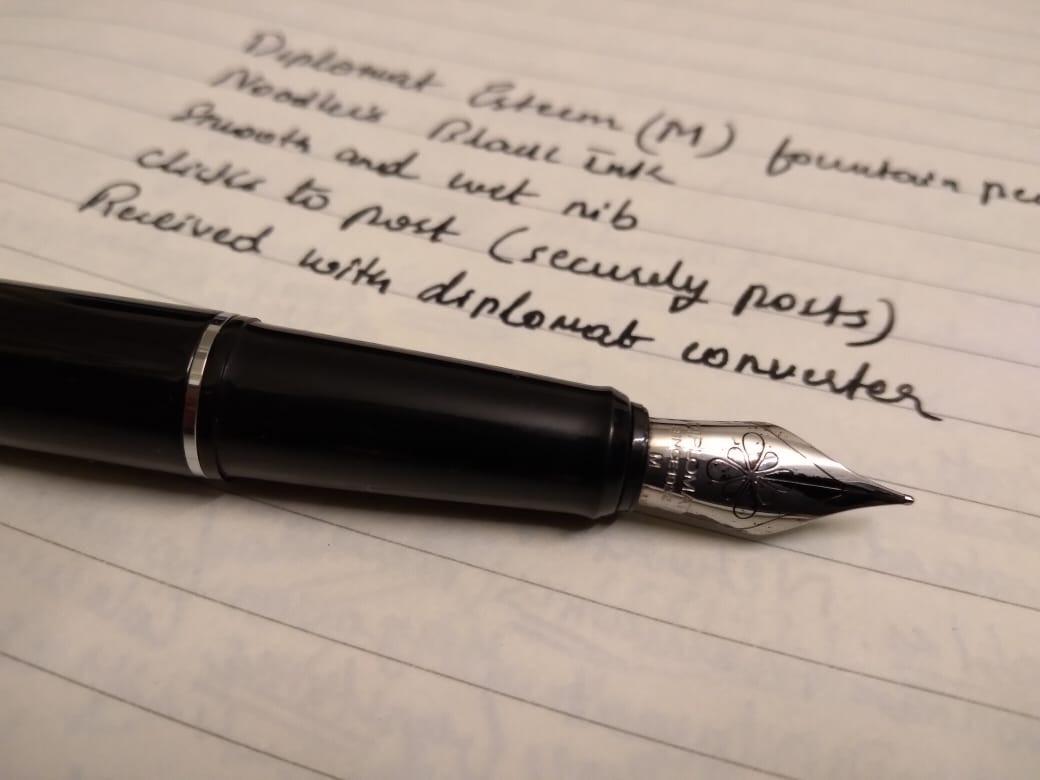 Diplomat Esteem (M) fountain pen
Noodler's Black ink
Smooth and wet nib
clicks to post (securely posts)
Received with diplomat converter
DIPLOMAT
SINCE 1922
M